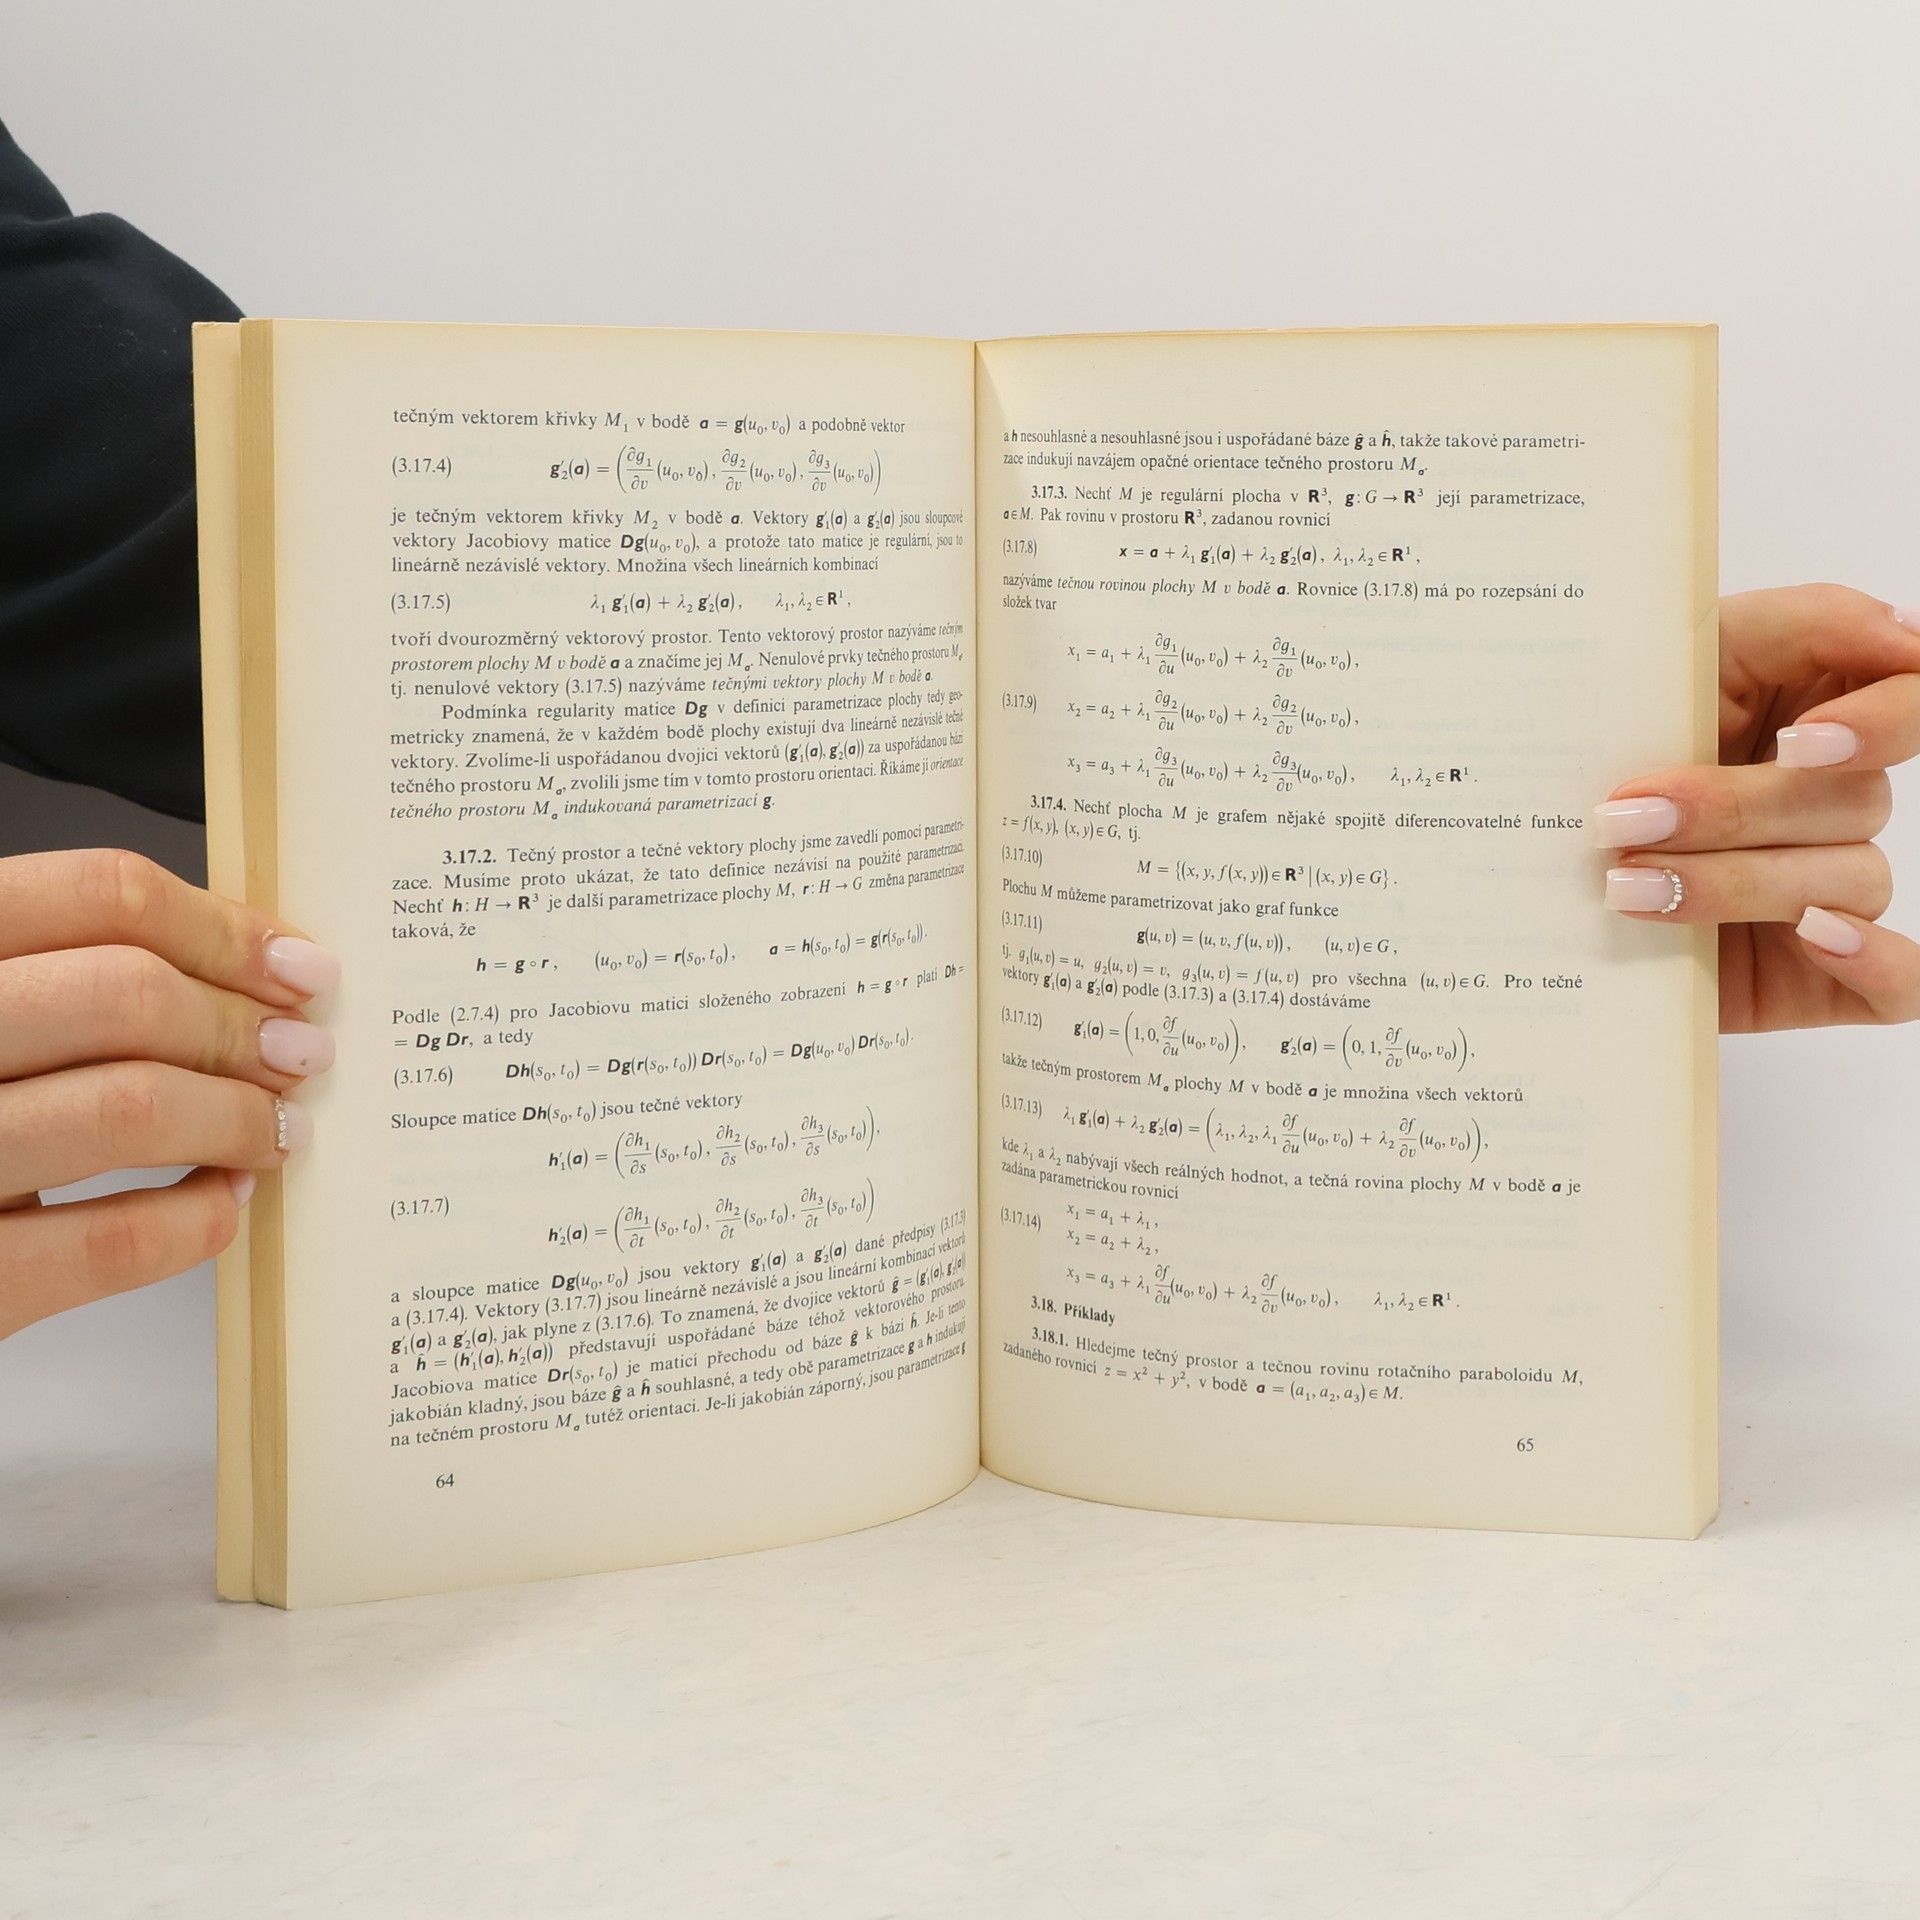 tečným vektorem křivky M₁ v bodě a = g(u₀, v₀) a podobně vektor
(3.17.4) g′₂(a) = (∂g₁/∂v (u₀, v₀), ∂g₂/∂v (u₀, v₀), ∂g₃/∂v (u₀, v₀))
je tečným vektorem křivky M₂ v bodě a. Vektory g′₁(a) a g′₂(a) jsou sloupcové
vektory Jacobiovy matice Dg(u₀, v₀), a protože tato matice je regulární, jsou to
lineárně nezávislé vektory. Množina všech lineárních kombinací
(3.17.5) λ₁ g′₁(a) + λ₂ g′₂(a), λ₁, λ₂ ∈ R¹,
tvoří dvourozměrný vektorový prostor. Tento vektorový prostor nazýváme tečným
prostorem plochy M v bodě a a značíme jej Mₐ. Nenulové prvky tečného prostoru Mₐ,
tj. nenulové vektory (3.17.5) nazýváme tečnými vektory plochy M v bodě a.
Podmínka regularity matice Dg v definici parametrizace plochy tedy geo-
metricky znamená, že v každém bodě plochy existují dva lineárně nezávislé tečné
vektory. Zvolíme-li uspořádanou dvojici vektorů (g′₁(a), g′₂(a)) za uspořádanou bázi
tečného prostoru Mₐ, zvolili jsme tím v tomto prostoru orientaci. Říkáme jí orientace
tečného prostoru Mₐ indukovaná parametrizací g.
3.17.2. Tečný prostor a tečné vektory plochy jsme zavedli pomocí parametri-
zace. Musíme proto ukázat, že tato definice nezávisí na použité parametrizaci.
Nechť h: H → R³ je další parametrizace plochy M, r: H → G změna parametrizace
taková, že
h = g ∘ r, (u₀, v₀) = r(s₀, t₀), a = h(s₀, t₀) = g(r(s₀, t₀)).
Podle (2.7.4) pro Jacobiovu matici složeného zobrazení h = g ∘ r platí Dh =
= Dg Dr, a tedy
(3.17.6) Dh(s₀, t₀) = Dg(r(s₀, t₀)) Dr(s₀, t₀) = Dg(u₀, v₀) Dr(s₀, t₀).
Sloupce matice Dh(s₀, t₀) jsou tečné vektory
h′₁(a) = (∂h₁/∂s (s₀, t₀), ∂h₂/∂s (s₀, t₀), ∂h₃/∂s (s₀, t₀)),
(3.17.7)
h′₂(a) = (∂h₁/∂t (s₀, t₀), ∂h₂/∂t (s₀, t₀), ∂h₃/∂t (s₀, t₀))
a sloupce matice Dg(u₀, v₀) jsou vektory g′₁(a) a g′₂(a) dané předpisy (3.17.3)
a (3.17.4). Vektory (3.17.7) jsou lineárně nezávislé a jsou lineární kombinací vektorů
g′₁(a) a g′₂(a), jak plyne z (3.17.6). To znamená, že dvojice vektorů ĝ = (g′₁(a), g′₂(a))
a ĥ = (h′₁(a), h′₂(a)) představují uspořádané báze téhož vektorového prostoru.
Jacobiova matice Dr(s₀, t₀) je maticí přechodu od báze ĝ k bázi ĥ. Je-li tento
jakobián kladný, jsou báze ĝ a ĥ souhlasné, a tedy obě parametrizace g a h indukují
na tečném prostoru Mₐ tutéž orientaci. Je-li jakobián záporný, jsou parametrizace g
64
a h nesouhlasné a nesouhlasné jsou i uspořádané báze ĝ a ĥ, takže takové parametri-
zace indukují navzájem opačné orientace tečného prostoru Mₐ.
3.17.3. Nechť M je regulární plocha v R³, g: G → R³ její parametrizace,
a ∈ M. Pak rovinu v prostoru R³, zadanou rovnicí
(3.17.8) x = a + λ₁ g′₁(a) + λ₂ g′₂(a), λ₁, λ₂ ∈ R¹,
nazýváme tečnou rovinou plochy M v bodě a. Rovnice (3.17.8) má po rozepsání do
složek tvar
x₁ = a₁ + λ₁ ∂g₁/∂u (u₀, v₀) + λ₂ ∂g₁/∂v (u₀, v₀),
(3.17.9) x₂ = a₂ + λ₁ ∂g₂/∂u (u₀, v₀) + λ₂ ∂g₂/∂v (u₀, v₀),
x₃ = a₃ + λ₁ ∂g₃/∂u (u₀, v₀) + λ₂ ∂g₃/∂v (u₀, v₀), λ₁, λ₂ ∈ R¹.
3.17.4. Nechť plocha M je grafem nějaké spojitě diferencovatelné funkce
z = f(x, y), (x, y) ∈ G, tj.
(3.17.10) M = {(x, y, f(x, y)) ∈ R³ | (x, y) ∈ G}.
Plochu M můžeme parametrizovat jako graf funkce
(3.17.11) g(u, v) = (u, v, f(u, v)), (u, v) ∈ G,
tj. g₁(u, v) = u, g₂(u, v) = v, g₃(u, v) = f(u, v) pro všechna (u, v) ∈ G. Pro tečné
vektory g′₁(a) a g′₂(a) podle (3.17.3) a (3.17.4) dostáváme
(3.17.12) g′₁(a) = (1, 0, ∂f/∂u (u₀, v₀)), g′₂(a) = (0, 1, ∂f/∂v (u₀, v₀)),
takže tečným prostorem Mₐ plochy M v bodě a je množina všech vektorů
(3.17.13) λ₁ g′₁(a) + λ₂ g′₂(a) = (λ₁, λ₂, λ₁ ∂f/∂u (u₀, v₀) + λ₂ ∂f/∂v (u₀, v₀)),
kde λ₁ a λ₂ nabývají všech reálných hodnot, a tečná rovina plochy M v bodě a je
zadána parametrickou rovnicí
(3.17.14) x₁ = a₁ + λ₁,
x₂ = a₂ + λ₂,
x₃ = a₃ + λ₁ ∂f/∂u (u₀, v₀) + λ₂ ∂f/∂v (u₀, v₀), λ₁, λ₂ ∈ R¹.
3.18. Příklady
3.18.1. Hledejme tečný prostor a tečnou rovinu rotačního paraboloidu M,
zadaného rovnicí z = x² + y², v bodě a = (a₁, a₂, a₃) ∈ M.
65